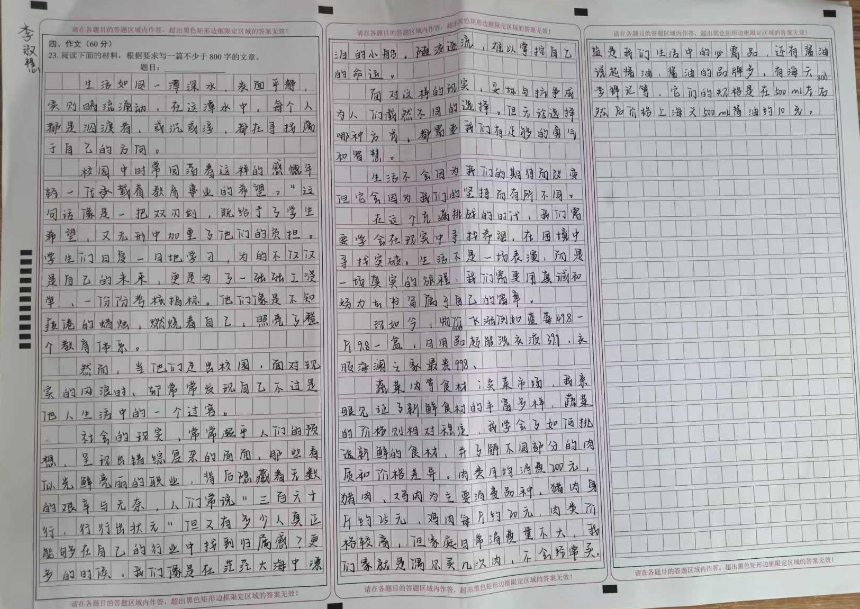 李淑慧
请在各题目的答题区域内作答，超出黑色矩形边框限定区域的答案无效！
四、作文（60 分）
23. 阅读下面的材料，根据要求写一篇不少于 800 字的文章。
题目：
生活如同一潭深水，表面平静，
实则暗流涌动，在这潭水中，每个人
都是泅渡者，或沉或浮，都在寻找属
于自己的方向。
校园中时常回荡着这样的感慨年
轻一代承载着教育事业的希望。"这
句话像是一把双刃剑，既给予了学生
希望，又无形中加重了他们的负担。
学生们日复一日地学习，为的不仅仅
是自己的未来，更是为了一张张工资
单，一份份考核指标。他们像是不知
疲倦的蜡烛，燃烧着自己，照亮了整
个教育体系。
然而，当他们走出校园，面对现
实的风浪时，却常常发现自己不过是
他人生活中的一个过客。
社会的现实，常常超乎人们的预
想，呈现出错综复杂的画面，那些看
似光鲜亮丽的职业，背后隐藏着无数
的艰辛与无奈，人们常说"三百六十
行，行行出状元"但又有多少人真正
能够在自己的行业中找到归属感？更
多的时候，我们像是在茫茫大海中漂
请在各题目的答题区域内作答，超出黑色矩形边框限定区域的答案无效！
请在各题目的答题区域内作答，超出黑色矩形边框限定区域的答案无效！
泊的小船，随波逐流，难以掌控自己
的命运。
面对这样的现实，妥协与抗争成
为人们截然不同的选择。但无论选择
哪种方式，都需要我们有足够的勇气
和智慧。
生活不会因为我们的期待而改变
但它会因为我们的坚持而有所不同。
在这个充满挑战的时代，我们需
要学会在现实中寻找希望，在困境中
寻找突破。生活不是一场表演，而是
一场真实的旅程，我们需要用真诚和
努力书写属于自己的篇章。
现如今，物价飞涨
片98一盒，日用品超能洗衣液39，衣
服海澜之家最贵998、
蔬菜肉等食材；买菜市场，我亲
眼见证了新鲜食材的丰富多样，蔬菜
的价格则相对稳定，我学会了如何挑
选新鲜的食材，并了解不同部分的肉
质和价格差异。肉类月均消费200元，
猪肉、鸡肉为主要消费品种，猪肉每
斤约25元，鸡肉每斤约20元，肉类价
格较高，但家庭日常消费量不大，我
们家就是偶尔买几次肉，不会经常买。
请在各题目的答题区域内作答，超出黑色矩形边框限定区域的答案无效！
请在各题目的答题区域内作答，超出黑色矩形边框限定区域的答案无效！
盐是我们生活中的必需品，还有酱油
说起酱油，酱油的品牌多，有海天
李锦记等，它们的规格是在500ml左右
然后价格上海天500ml酱油约10元。
请在各题目的答题区域内作答，超出黑色矩形边框限定区域的答案无效！